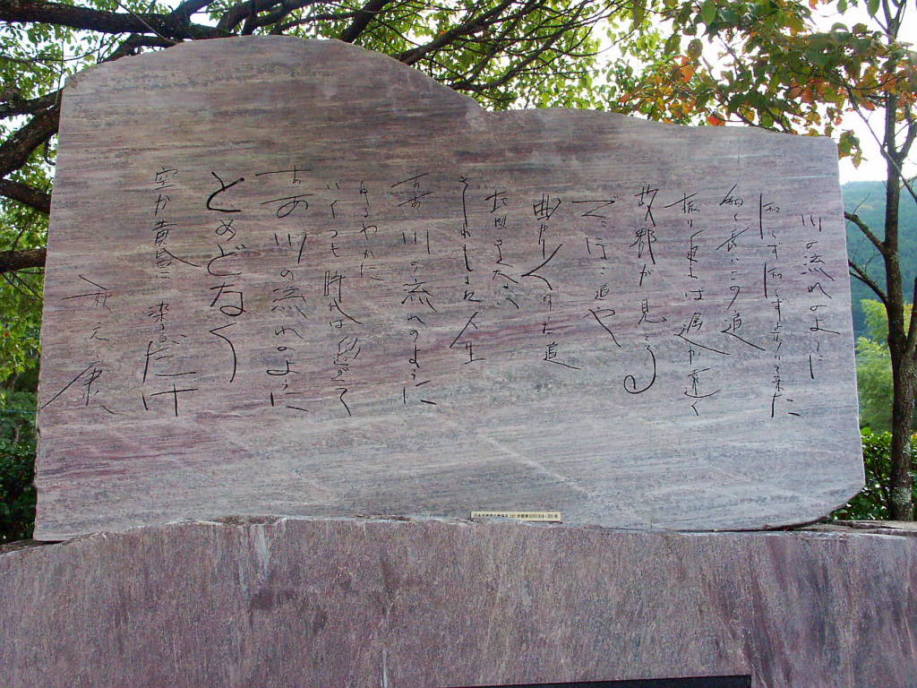 川の流れのように
知らず知らず歩いて来た
細く長いこの道
振り返れば遥か遠く
故郷が見える
でこぼこ道や
曲りくねった道
地図さえない
それもまた人生
ああ川の流れのように
ゆるやかに
いくつも時代は過ぎて
ああ川の流れのように
とめどなく
空が黄昏に染るだけ
秋元康